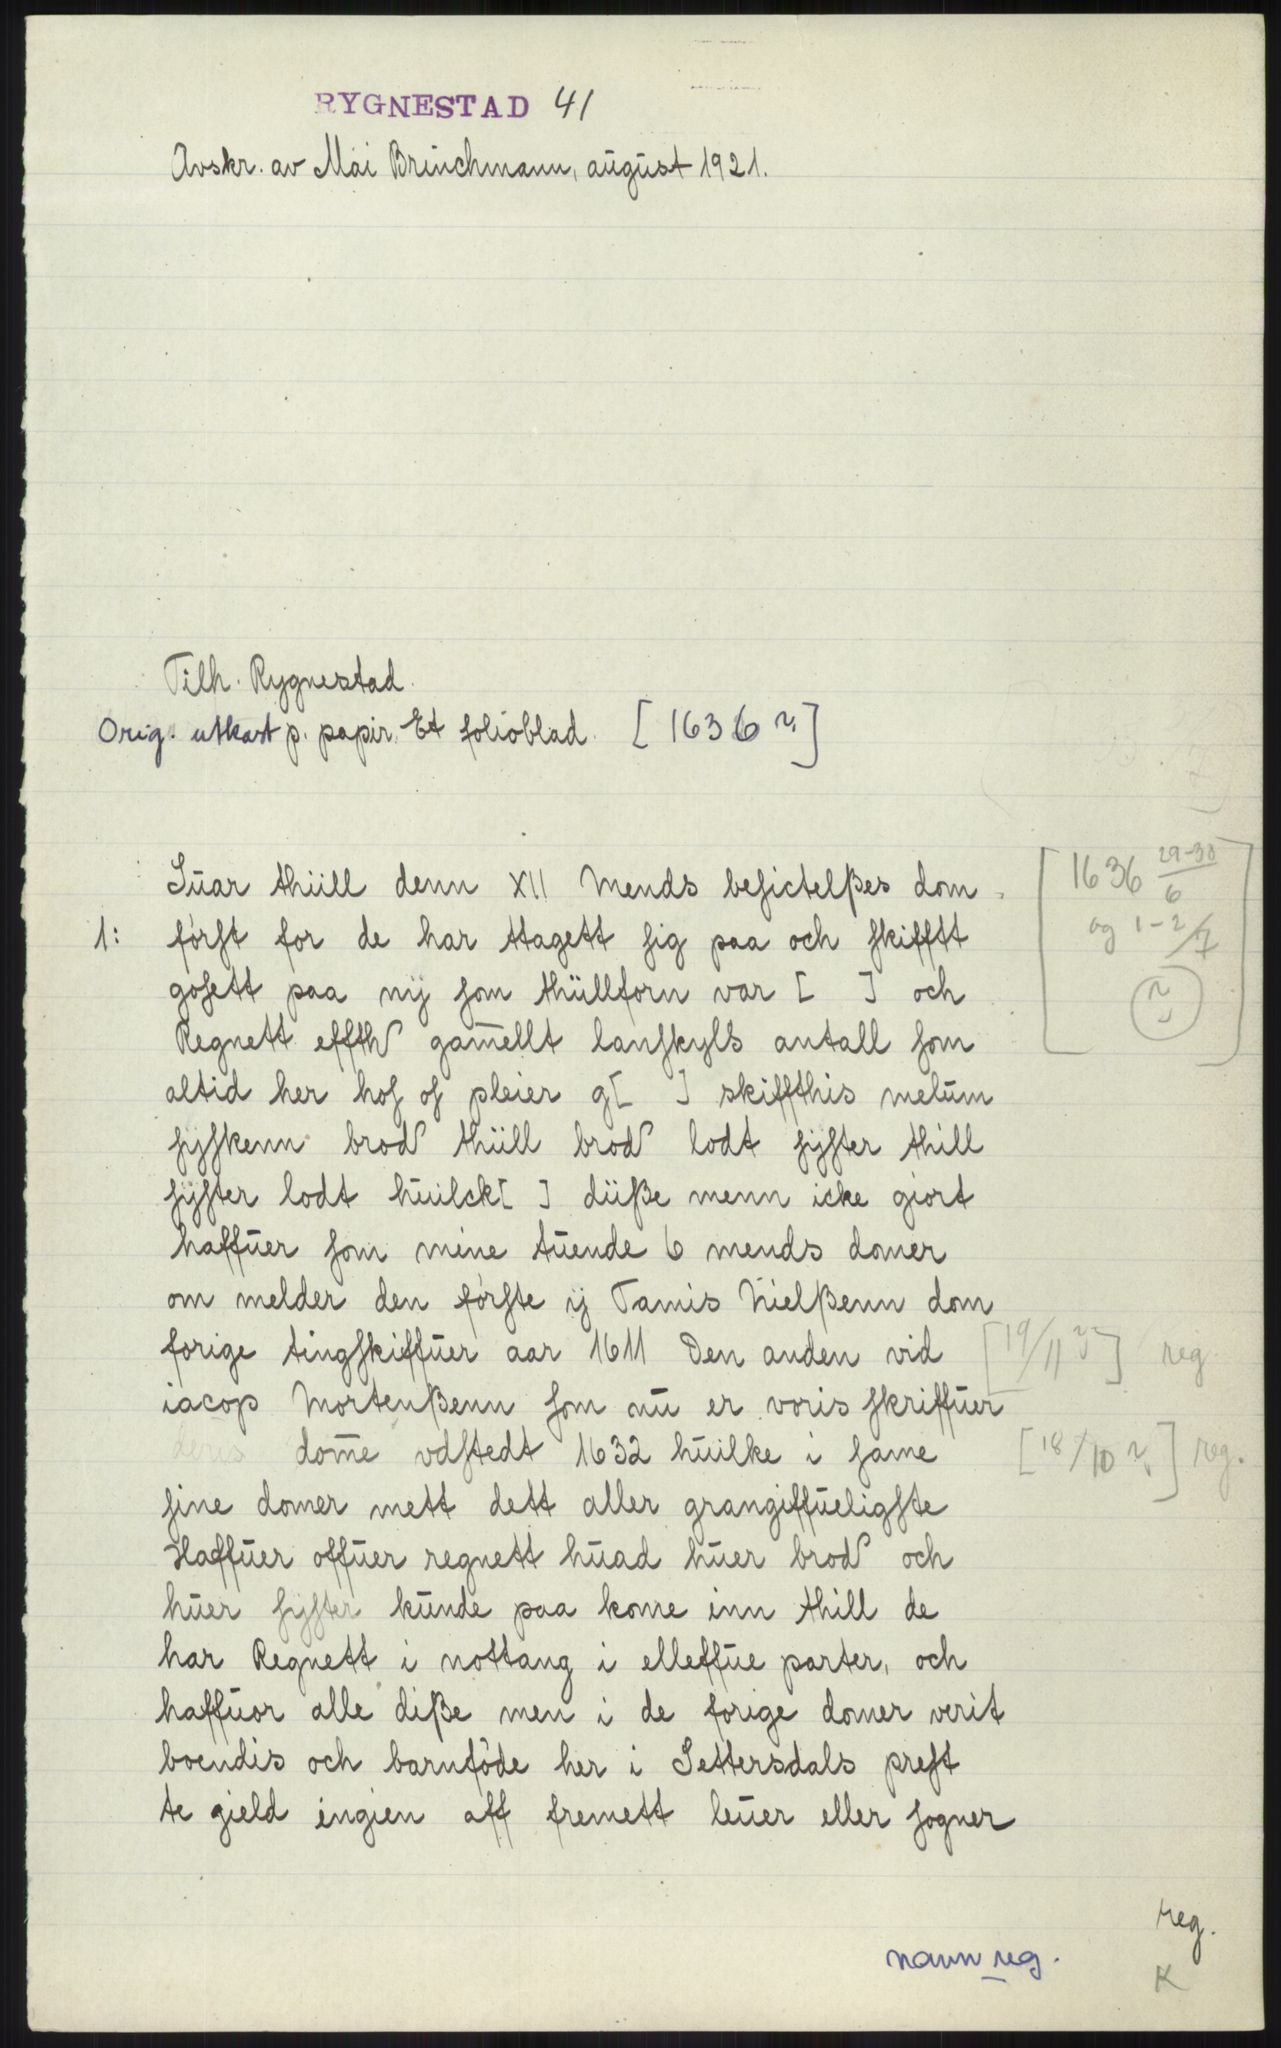 RYGNESTAD 41
Avskr. av Mai Brinchmann, august 1921.
Tilh. Rygnestad.
Orig. utkast p. papir. Et folioblad. [1636 ?]
Suar thüll denn XII Mends besictelßes dom
1: först for de har ttagett sig paa och skifftt
gosett paa nÿ som thüllforn var [ ] och
Regnett effth gamellt lanskyls antall som
altid her hos os pleier g[ ] skiffthis melum
syskenn brod thüll brod lodt sÿster thill
sÿster lodt huilck[ ] düße menn icke giort
haffuer som mine tuende 6 mends domer
om melder den förste ij Tamis Nielßenn dom
forige tingskiffuer aar 1611 Den anden vid
[19/11 ?] reg
iacop Mortenßenn som nu er voris skriffuer
deris dome vdstedt 1632 huilke i same
[18/10 ?] reg.
sine domer mett dett aller grangiffueligste
Haffuer offuer regnett huad huer brod och
huer syster kunde paa kome inn thill de
har Regnett i nottang i elleffue parter, och
haffuor alle diße men i de forige domer verit
boendis och barnföde her i Settersdals prest
te gield ingien aff fremett leuer eller sogner
[1636 29-30/6
og 1-2/7
?]
reg.
navn reg.
K